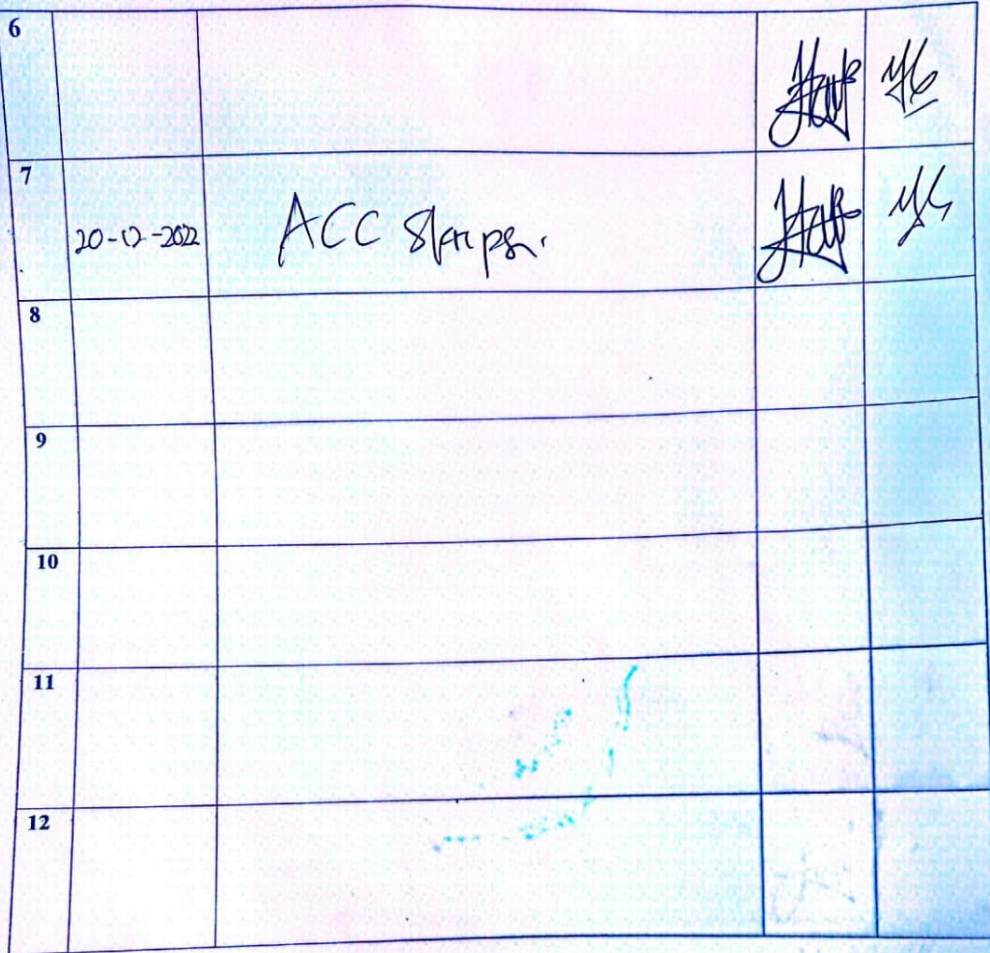 6
7
20-12-2022 ACC Skripsi.
8
9
10
11
12